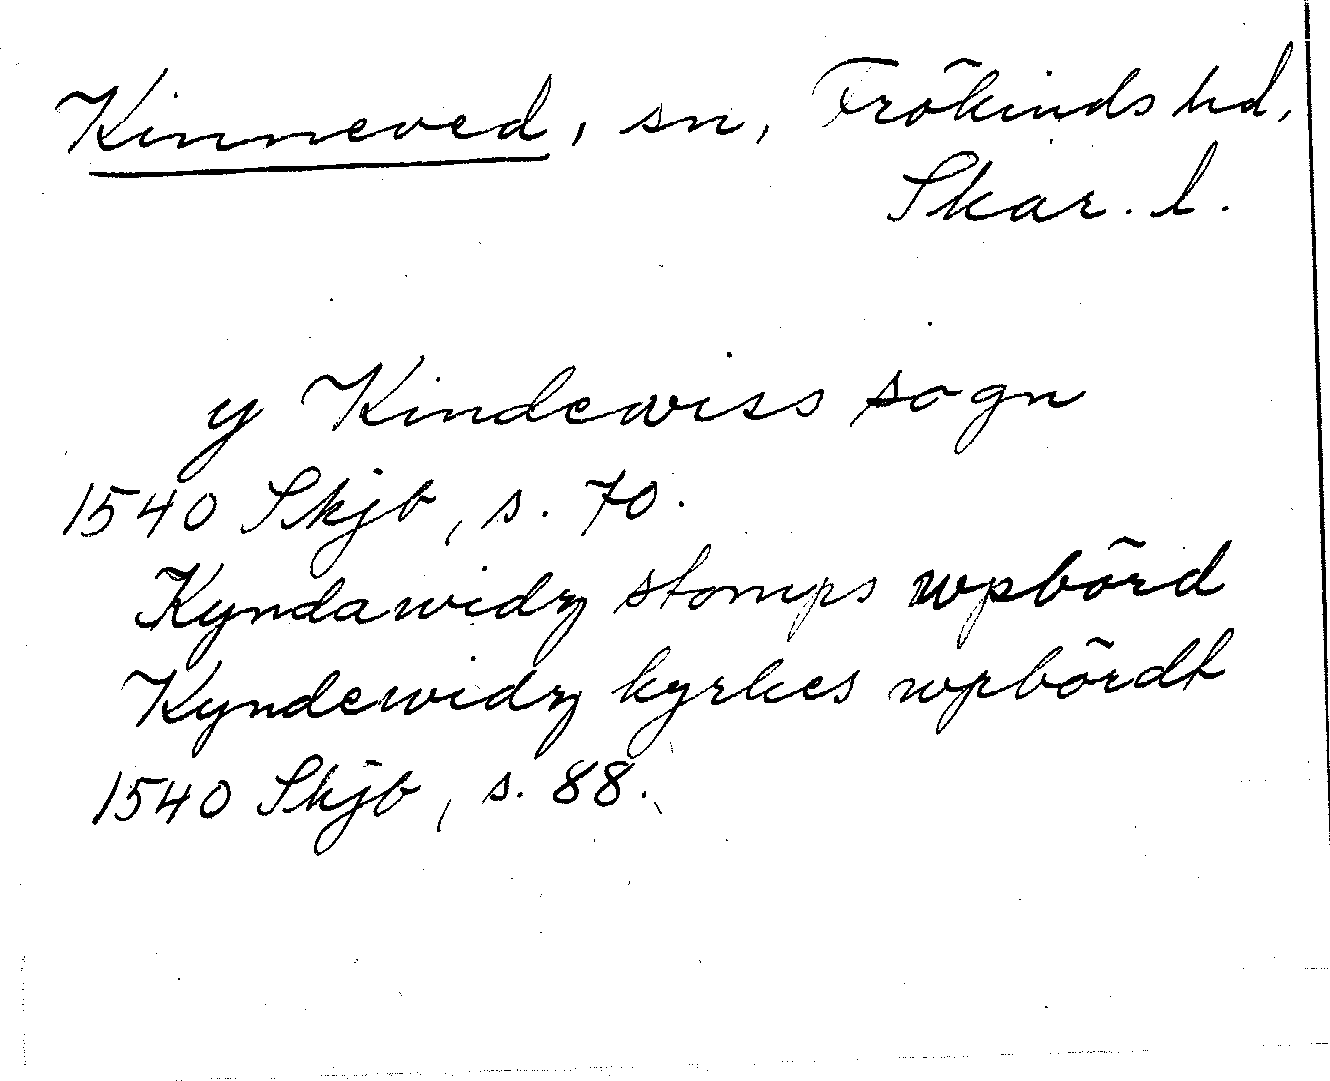 Kinneved, sn, Frökinds hd,
Skar. l.
y Kindewiss sogn
1540 Skjb, s. 70.
Kyndawidz stomps wpbörd
Kyndewidz kyrkes wpbördt
1540 Skjb, s. 88.